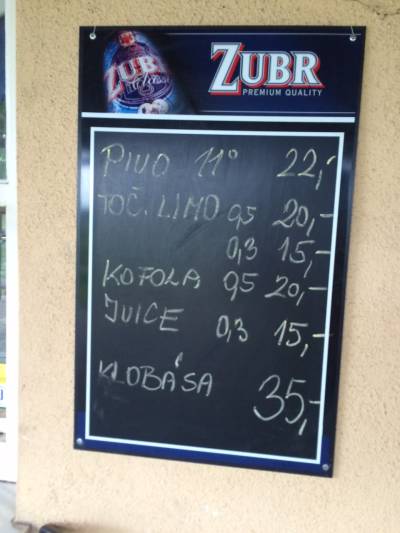 ZUBR
ZUBR
PREMIUM QUALITY
PIVO 11° 22,-
TOČ. LIMO 0,5 20,-
0,3 15,-
KOFOLA 0,5 20,-
JUICE 0,3 15,-
KLOBÁSA 35,-